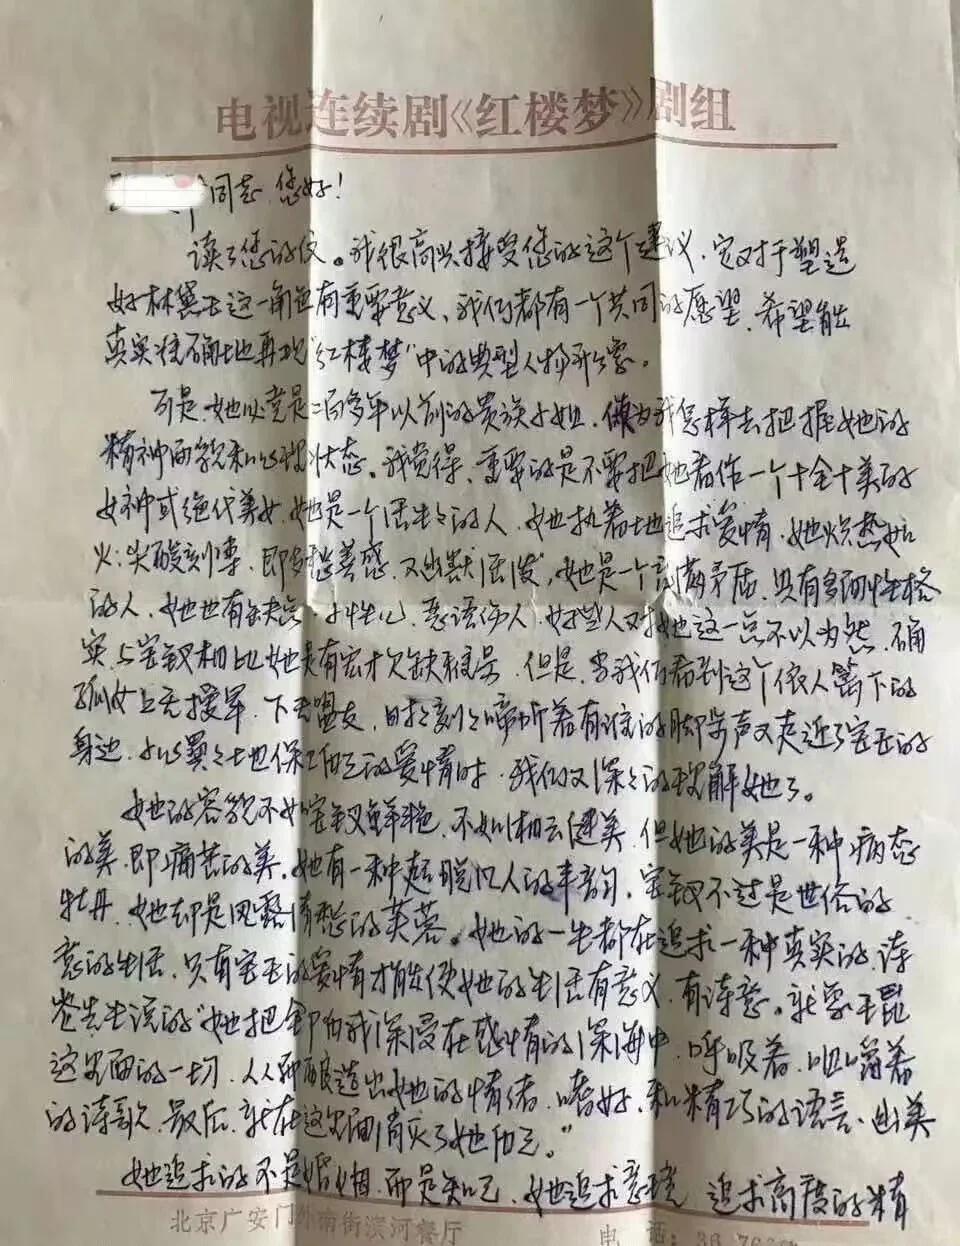 电视连续剧《红楼梦》剧组
同志 您好！
读了您的信。我很高兴接受您的这个建议，它对于塑造
好林黛玉这一角色有重要意义、我们都有一个共同的愿望、希望能
真实准确地再现“红楼梦”中的典型人物形象。
可是，她必竟是二百多年以前的贵族小姐，做为我怎样去把握她的
精神面貌和心理状态。我觉得、重要的是不要把她看作一个十全十美的
女神或绝代美女，她是一个活生生的人，她执着地追求爱情，她炽热如
火；尖酸刻薄，即多愁善感，又幽默活泼，她是一个充满矛盾、具有多面性格
的人，她也有缺点，小性儿，恶语伤人，好些人又对她这一点不以为然，确
实，与宝钗相比她是有些才欠缺，但是，当我们看到这个依人篱下的
孤女上无援军，下无盟友，时时刻刻啼听着有谁的脚步声又走近了宝玉的
身边，小心翼翼地保卫自己的爱情时，我们又深深的理解她了。
她的容貌不如宝钗鲜艳，不如湘云健美，但她的美是一种病态
的美，即痛苦的美。她有一种超脱凡人的丰韵，宝钗不过是世俗的
牡丹，她却是风露清愁的芙蓉。她的一生都在追求一种真实的，诗
意的生活，只有宝玉的爱情才能使她的生活有意义，有诗意。就象王昆
仑先生说的“她把全部自我深浸在感情的深海中，呼吸着，咀嚼着
这里面的一切，从那里面酿造出她的情绪，嗜好，和精巧的语言、幽美
的诗歌、最后，就在这里面消灭了她自己。”
她追求的不是婚姻，而是知己，她追求意境，追求高度的精
北京广安门外南街滨河餐厅
电 话：